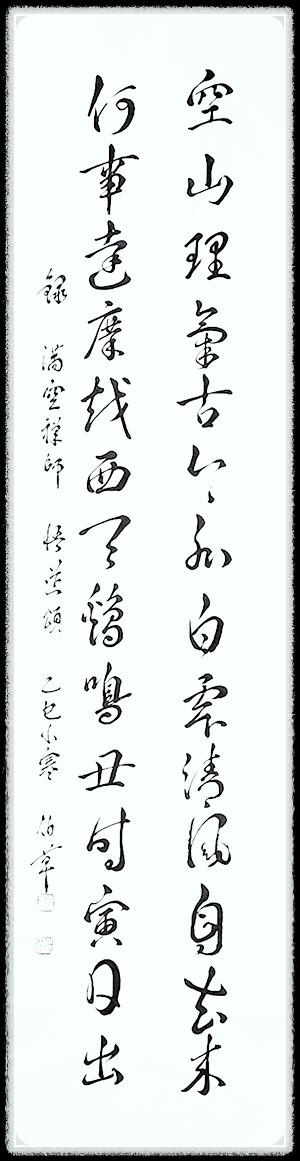 空山理氣古今外白雲清風自去來
何事達摩越西天鷄鳴丑時寅日出
錄 滿空禪師 悟道頌 乙巳小寒